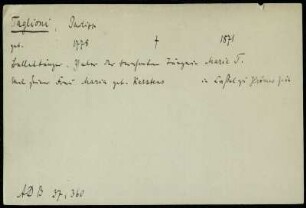 Taglioni, Philipp
geb. 1778 † 1871
Balletttänzer. Vater der berühmten Tänzerin Marie T.
Und seiner Frau Maria geb. Karsten in Cassel zu
ADB 37, 360